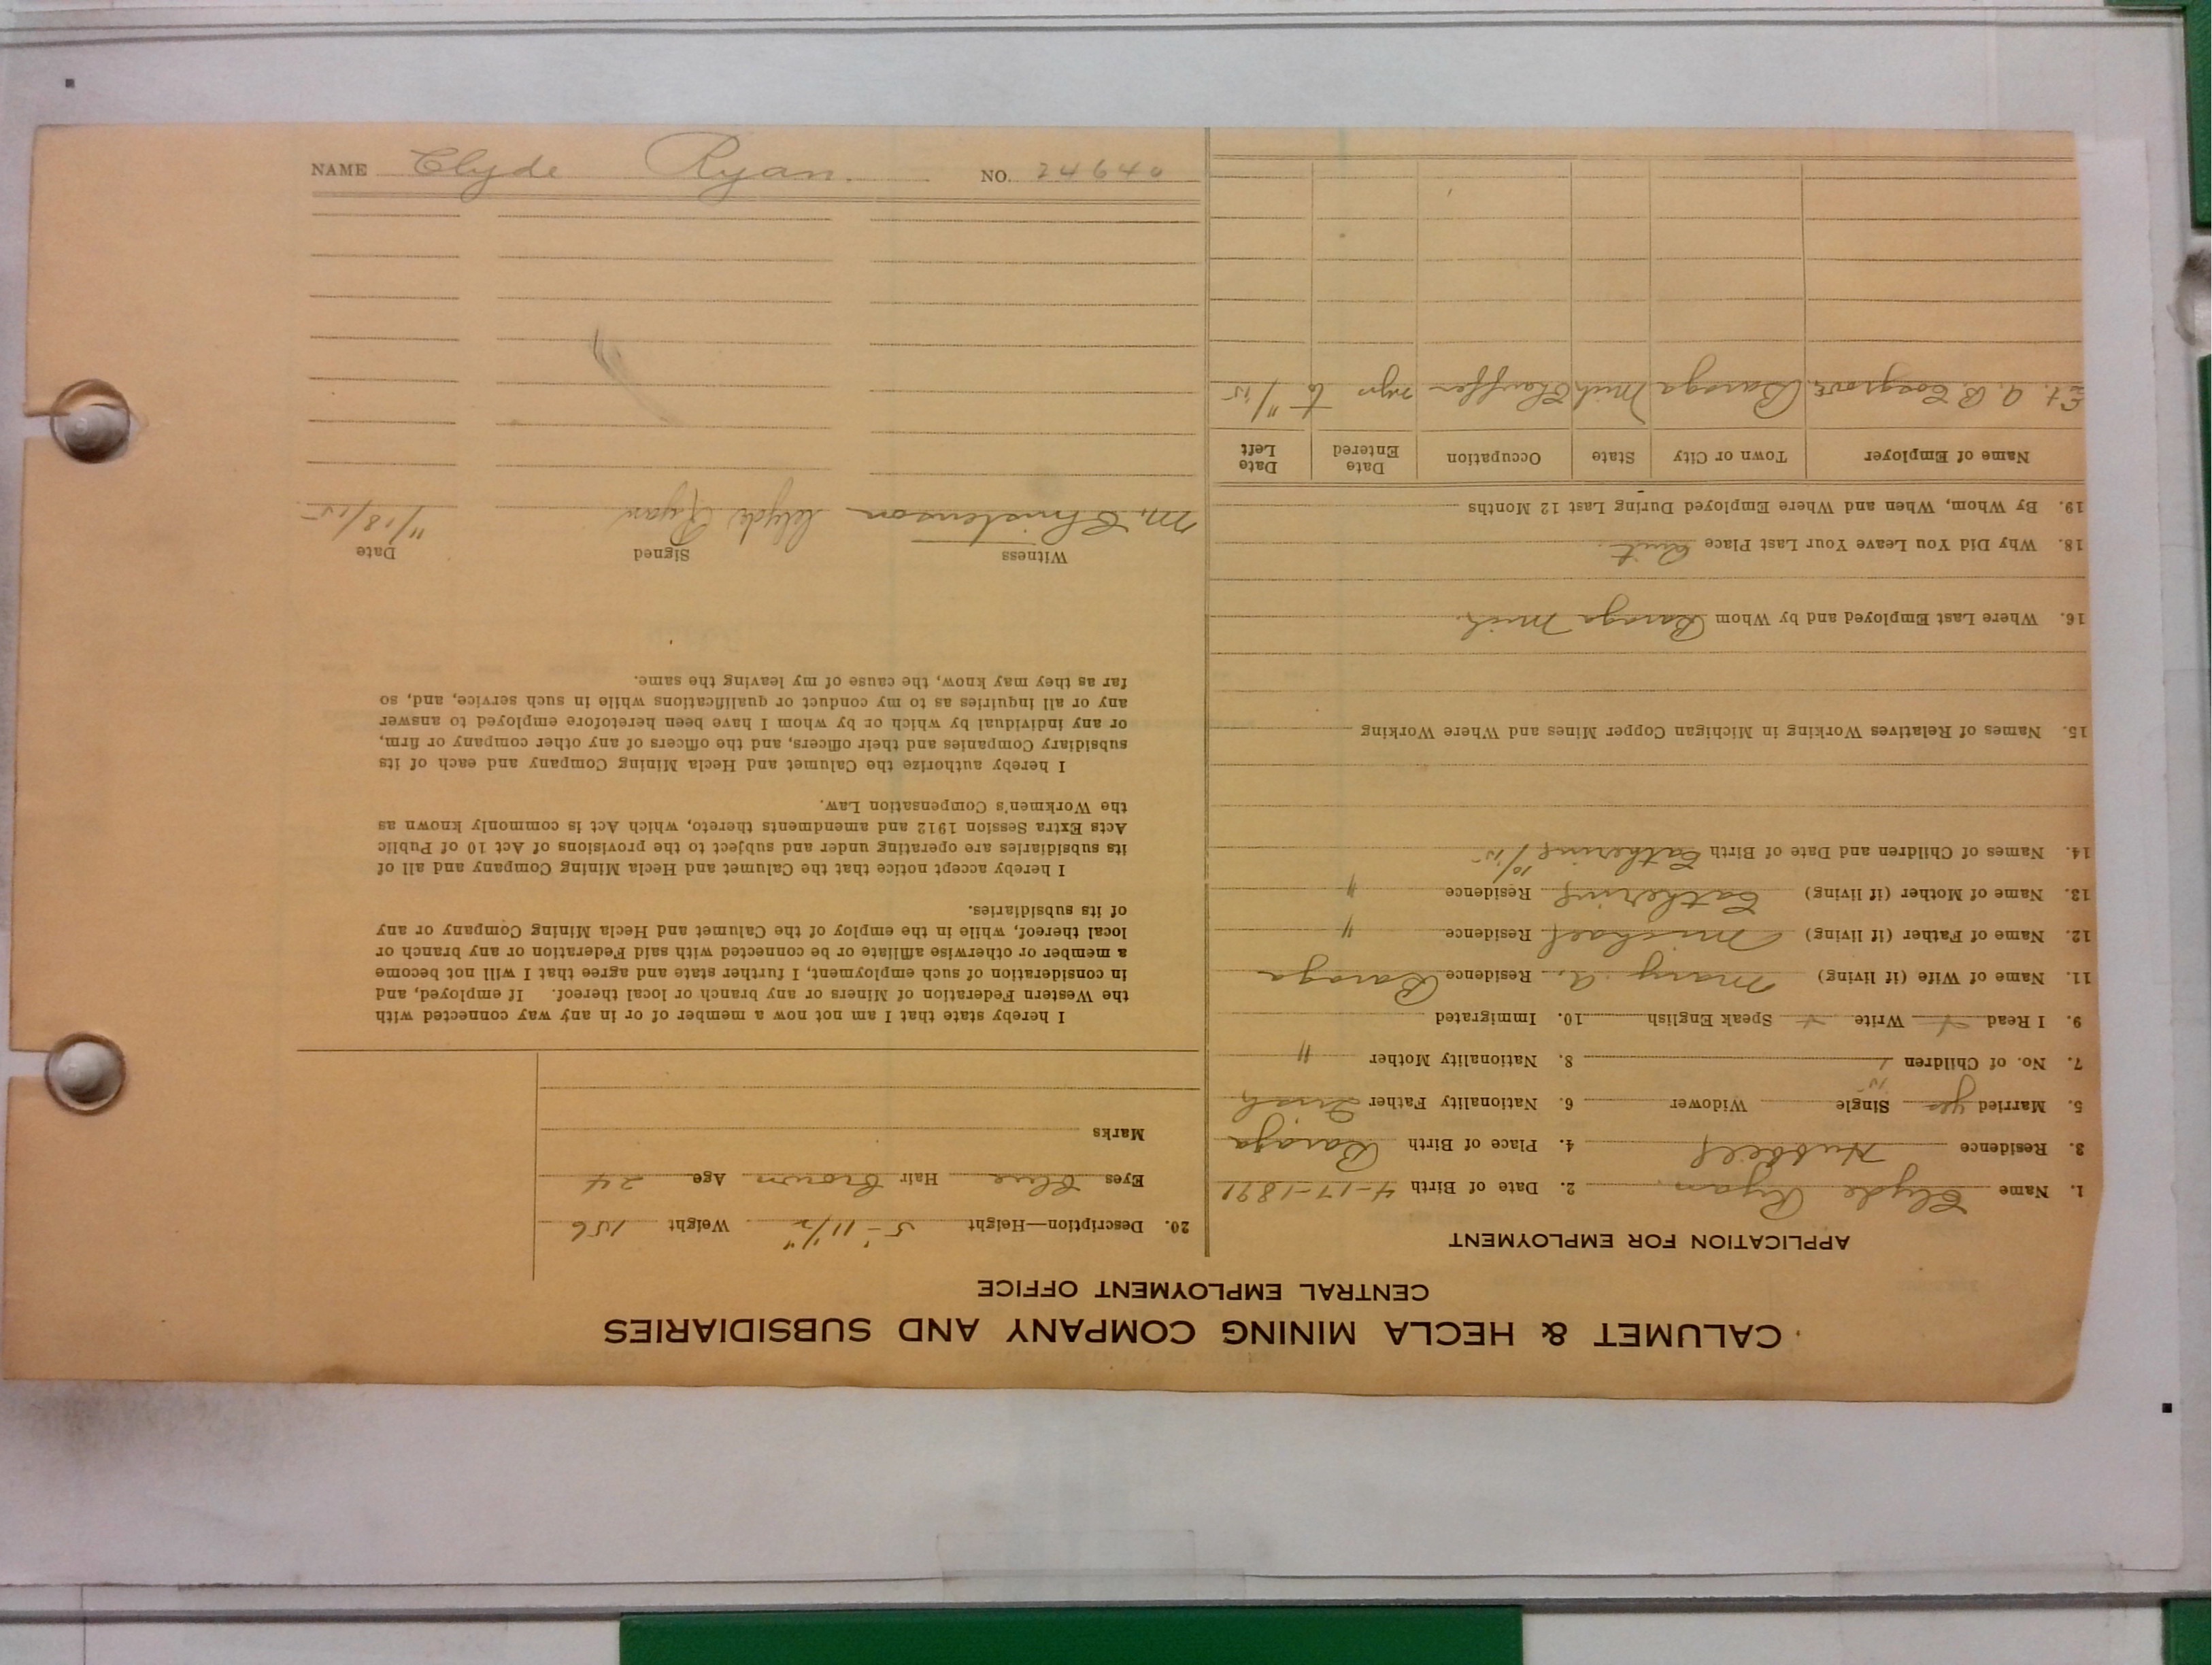 CALUMET & HECLA MINING COMPANY AND SUBSIDIARIES
CENTRAL EMPLOYMENT OFFICE
APPLICATION FOR EMPLOYMENT
1. Name Clyde Ryan. 2. Date of Birth 4-17-1891
3. Residence Hubbell 4. Place of Birth Baraga
5. Married yes Single Widower 6. Nationality Father Irish
7. No. of Children 1 8. Nationality Mother "
9. I Read Write Speak English 10. Immigrated
11. Name of Wife (if living) Mary A. Residence Baraga
12. Name of Father (if living) Michael Residence "
13. Name of Mother (if living) Catherine Residence "
14. Names of Children and Date of Birth Catherine 10/15
15. Names of Relatives Working in Michigan Copper Mines and Where Working
16. Where Last Employed and by Whom Baraga Mich.
18. Why Did You Leave Your Last Place Quit.
19. By Whom, When and Where Employed During Last 12 Months
Name of Employer Town or City State Occupation Date Entered Date Left
A. B. Cosgrove Baraga Mich Chauffer 11/15
20. Description—Height 5'-11 1/2" Weight 156
Eyes Blue Hair Brown Age 24
Marks
I hereby state that I am not now a member of or in any way connected with
the Western Federation of Miners or any branch or local thereof. If employed, and
in consideration of such employment, I further state and agree that I will not become
a member or otherwise affiliate or be connected with said Federation or any branch or
local thereof, while in the employ of the Calumet and Hecla Mining Company or any
of its subsidiaries.
I hereby accept notice that the Calumet and Hecla Mining Company and all of
its subsidiaries are operating under and subject to the provisions of Act 10 of Public
Acts Extra Session 1912 and amendments thereto, which Act is commonly known as
the Workmen's Compensation Law.
I hereby authorize the Calumet and Hecla Mining Company and each of its
subsidiary Companies and their officers, and the officers of any other company or firm,
or any individual by which or by whom I have been heretofore employed to answer
any or all inquiries as to my conduct or qualifications while in such service, and, so
far as they may know, the cause of my leaving the same.
Witness Signed Date
M. Christenson Clyde Ryan 11/18/15
NAME Clyde Ryan. NO. 24640